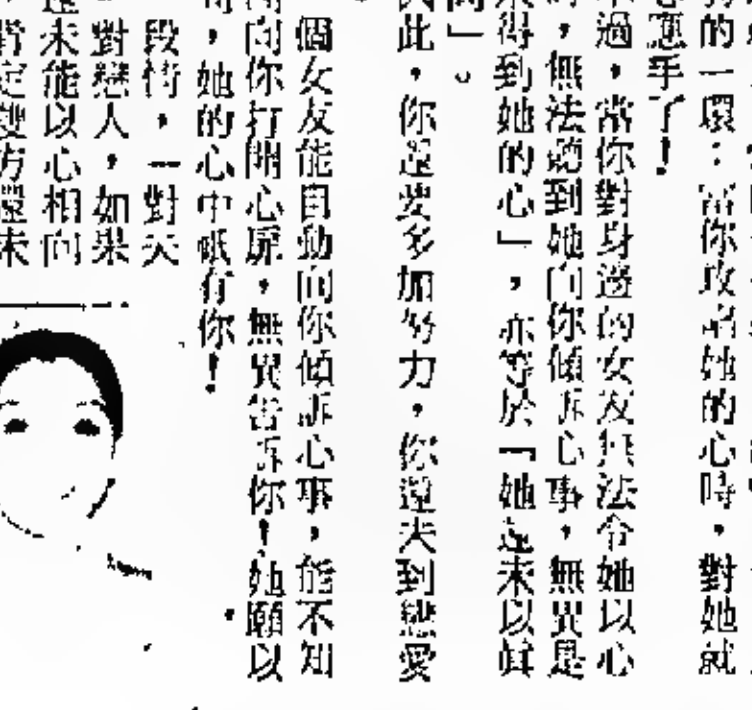 的一環：當你攻占她的心時，對她就
應手了！
過，當你對身邊的女友無法令她以心
，無法聽到她向你傾訴心事，無異是
得到她的心」，亦等於「她還未以眞
」。
此，你還要多加努力，你還未到戀愛
個女友能自動向你傾訴心事，能不知
向你打開心扉，無異告訴你！她願以
，她的心中祇有你！
段情，一對夫
對戀人，如果
未能以心相向
定雙方還未